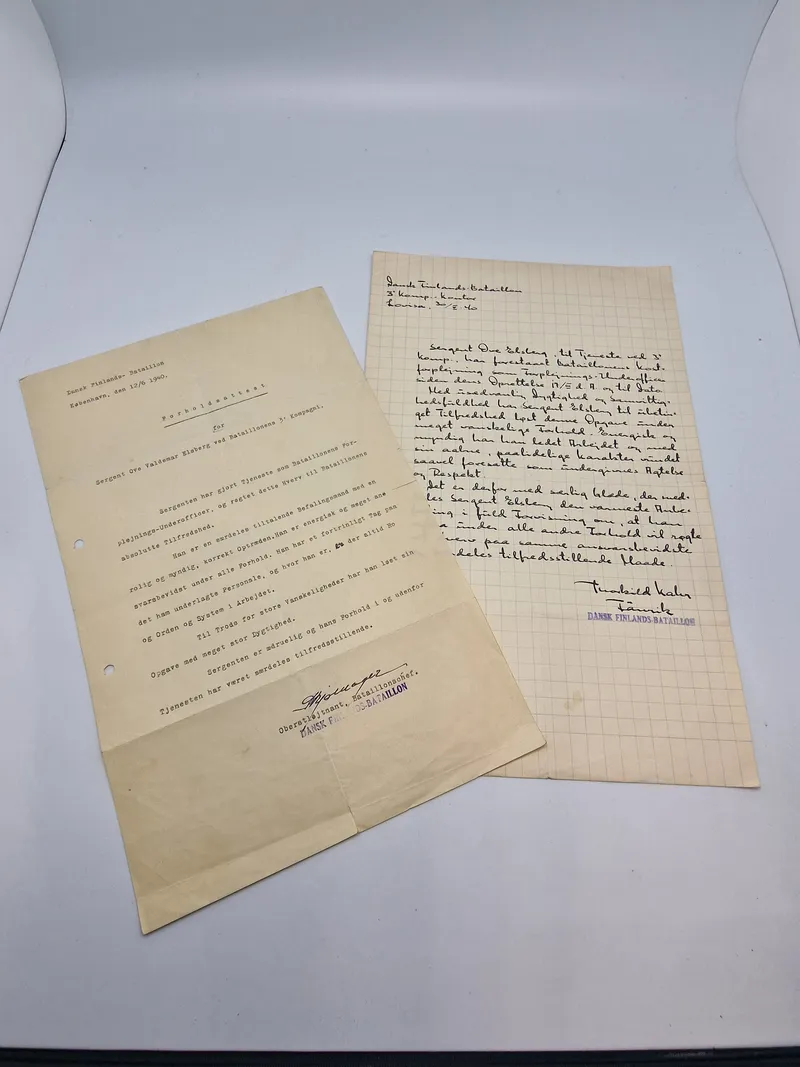 Dansk Finlands- Bataillon
København, den 12/6 1940.
Forholdsattest
for
Sergent Ove Valdemar Elsberg ved Bataillonens 3. Kompagni.
Sergenten har gjort Tjeneste som Bataillonens For-
plejnings-Underofficer, og røgtet dette Hverv til Bataillonens
absolutte Tilfredshed.
Han er en særdeles tiltalende Befalingsmand med en
rolig og myndig, korrekt Optræden. Han er energisk og meget ans
svarsbevidst under alle Forhold. Han har et fortrinligt Tag paa
det ham underlagte Personale, og hvor han er, er der altid Ro
og Orden og System i Arbejdet.
Til Trods for store Vanskeligheder har han løst sin
Opgave med meget stor Dygtighed.
Sergenten er ædruelig og hans Forhold i og udenfor
Tjenesten har været særdeles tilfredsstillende.
Oberstløjtnant, Bataillonschef.
DANSK FINLANDS-BATAILLON
Dansk Finlands-Bataillon
3' Komp., Kontor
Lovisa, 30/5-40
Sergent Ove Elsberg, til Tjeneste ved 3'
Komp., har forestaaet Bataillonens Kost-
forplejning som Forplejnings-Underofficer
siden dens Oprettelse d. A. og til Dato.
Med usædvanlig Dygtighed og Samvittig-
hedsfuldhed har Sergent Elsberg til ubetin-
get Tilfredshed løst denne Opgave under
meget vanskelige Forhold. Energisk og
myndig har han ledet Arbejdet og med
sin aabne, paalidelige Karakter vundet
saavel foresatte som undergivnes Agtelse
og Respekt.
Det er derfor med særlig Glæde, der med-
les Sergent Elsberg den varmeste Anbe-
ling i fuld Forvisning om, at han
under alle andre Forhold vil røgte
paa samme ansvarsbevidste
deles tilfredsstillende Maade.
Fänrik
DANSK FINLANDS-BATAILLON